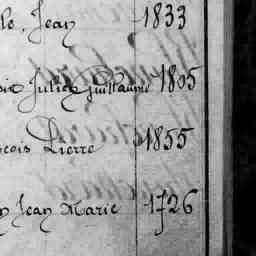 le. Jean 1833
Julien Guillaume 1805
cois Pierre 1855
n Jean Marie 1726